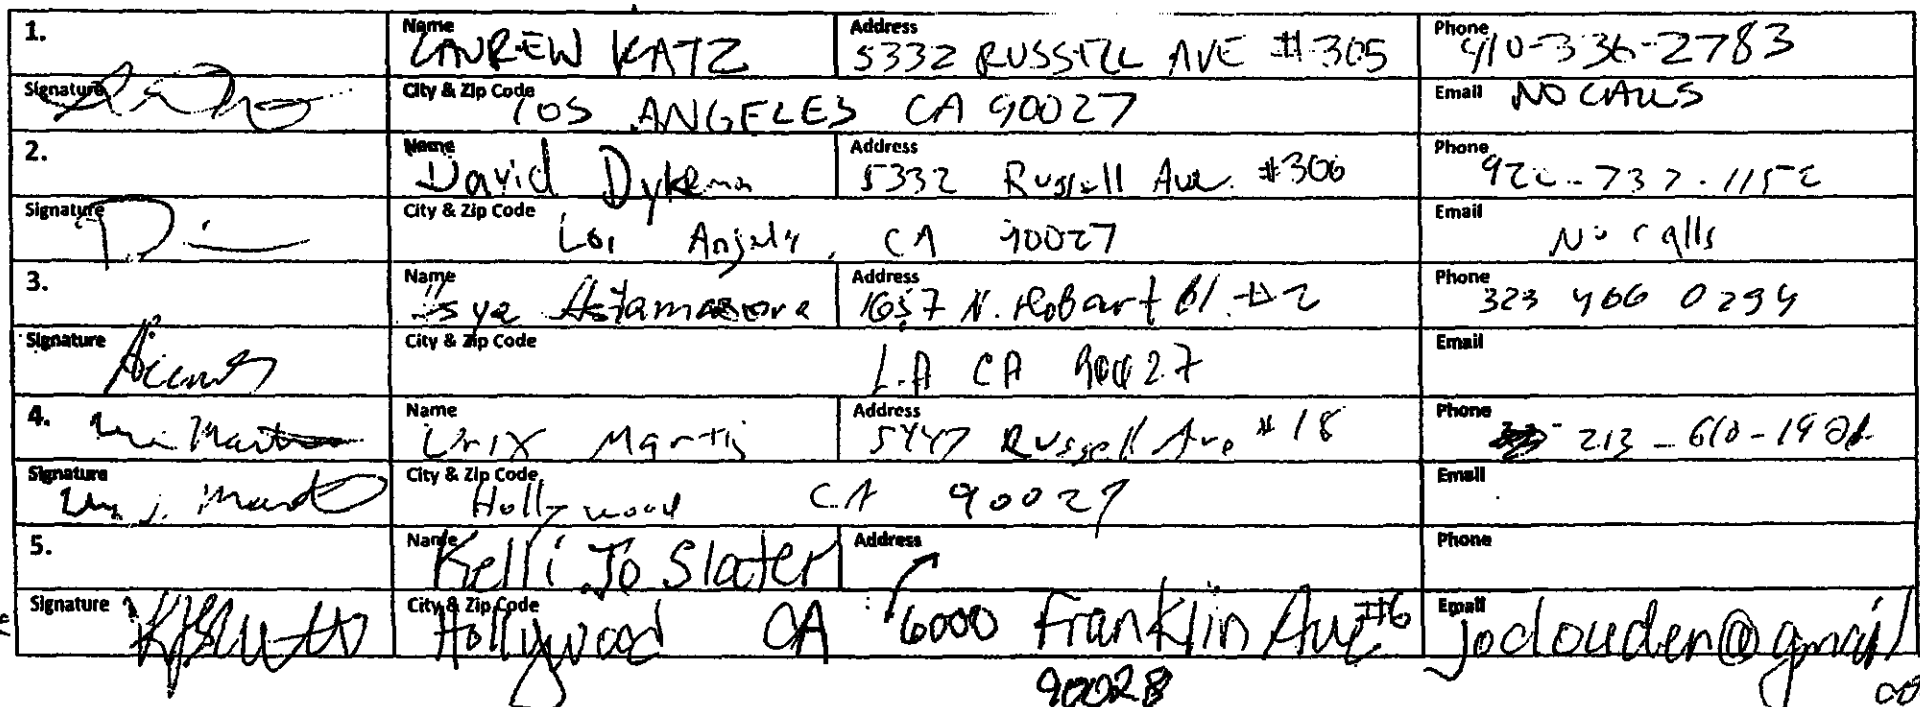 1. Name LAUREW KATZ Address 5332 RUSSELL AVE #305 Phone 410-336-2783
Signature City & Zip Code LOS ANGELES CA 90027 Email NO CALLS
2. Name David Dykema Address 5332 Russell Ave. #306 Phone
Signature City & Zip Code Los Angeles, CA 90027 Email No calls
3. Name Address 1657 N. Hobart Bl. #2 Phone 323 466 0294
Signature City & Zip Code L.A CA 90027 Email
4. Name Martin Address 5447 Russell Ave #18 Phone 213-610-19
Signature City & Zip Code Hollywood CA 90027 Email
5. Name Kelli Jo Slater Address Phone
Signature City & Zip Code Hollywood CA 6000 Franklin Ave #6 Email joclouden@gmail
90028